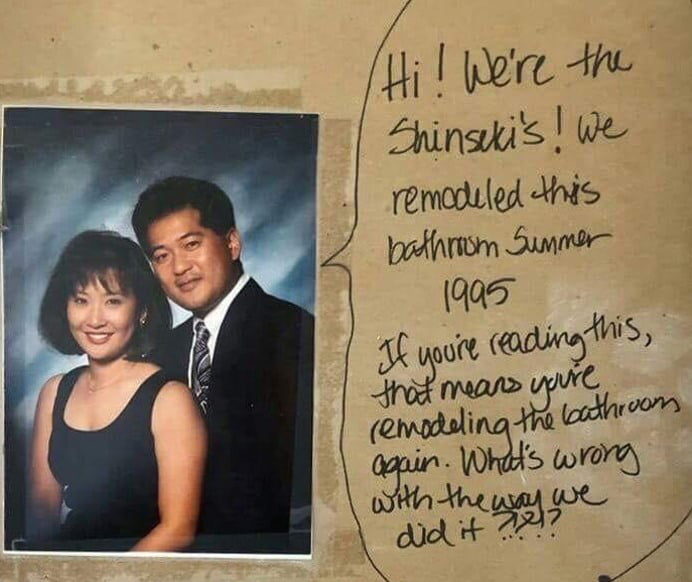 Hi! We're the
Shinseki's! We
remodeled this
bathroom Summer
1995
If you're reading this,
that means you're
remodeling the bathroom
again. What's wrong
with the way we
did it ?!?!?